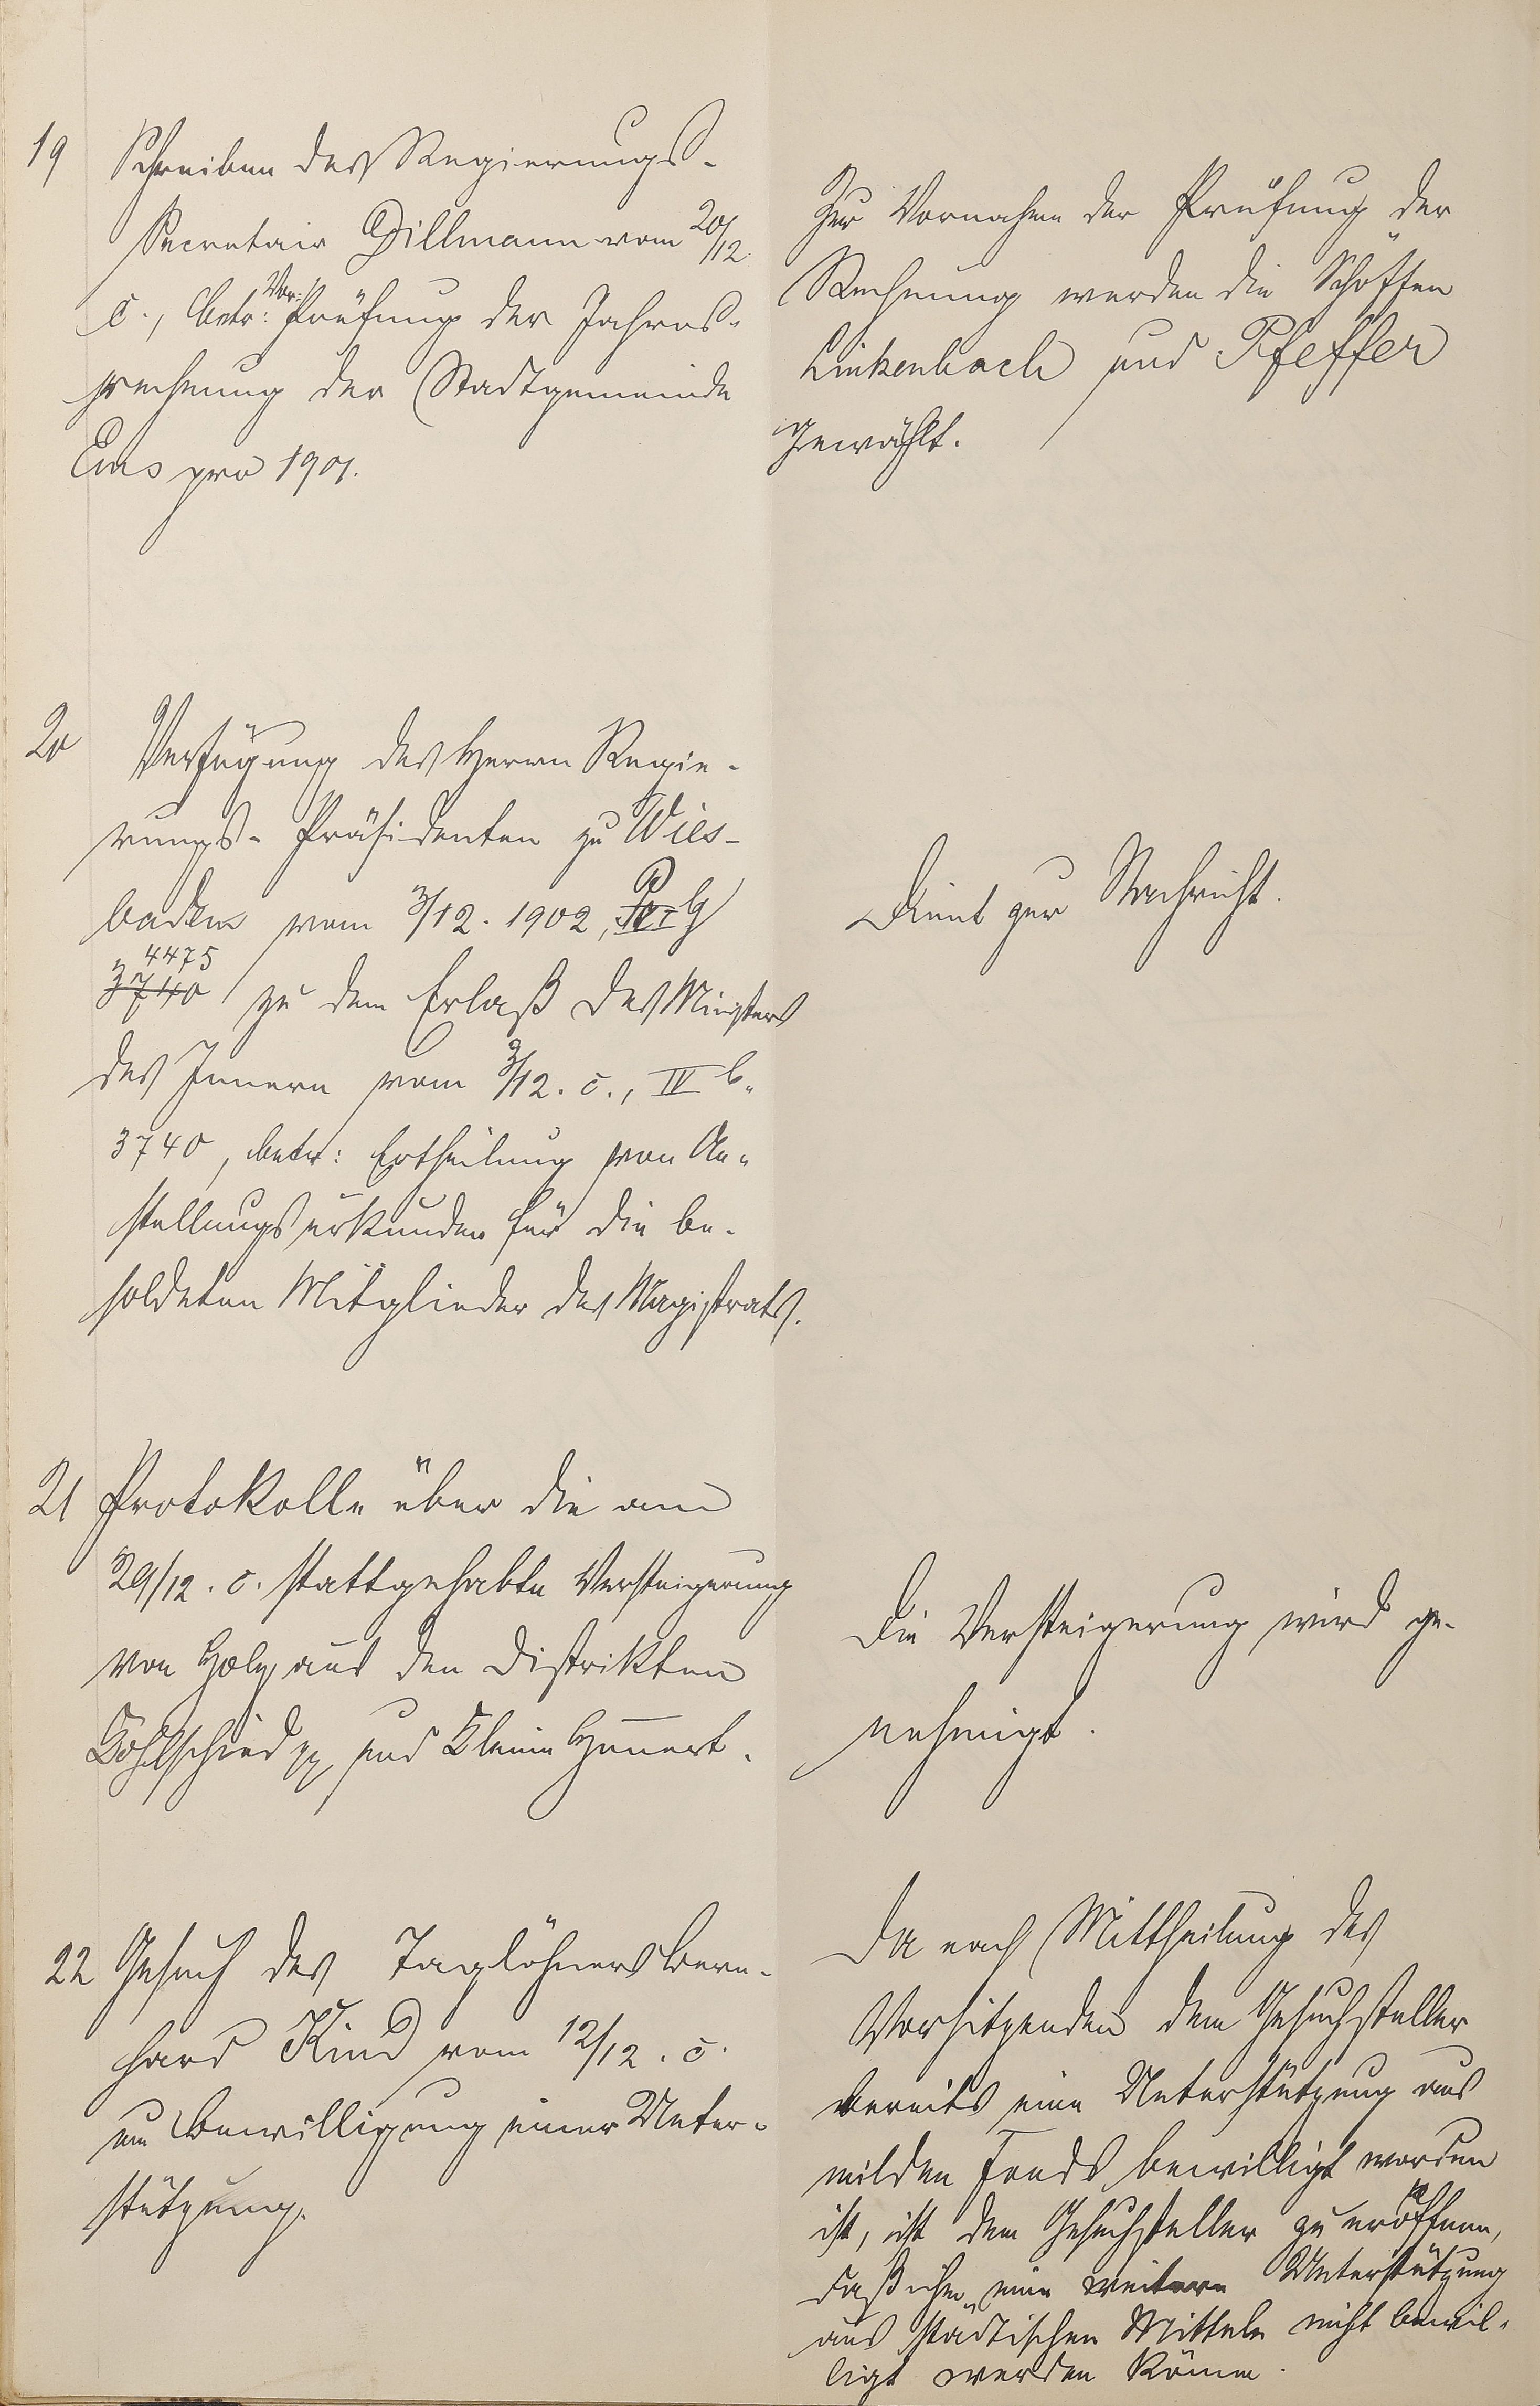 19 Schreiben des Regierungs-
Secretair Dillmann vom 20/12.
c., betr: Vor-Prüfung der Jahres-
rechnung der Stadtgemeinde
Ems pro 1901.
Zur Vornahme der Prüfung der
Rechnung werden die Schöffen
Linkenbach und Pfeffer
gewählt.
20 Verfügung des Herrn Regie-
rungs-Präsidenten zu Wies-
baden vom 3/12. 1902, G
4475
3740 zu dem Erlaß des Ministers
des Innern vom 3/12. c., IV b.
3740, betr: Ertheilung von An-
stellungsurkunden für die be-
soldeten Mitglieder des Magistrats.
Dient zur Nachricht.
21 Protokolle über die am
29/12. c. stattgehabte Versteigerung
von Holz aus den Distrikten
und Klein
Die Versteigerung wird ge-
nehmigt.
22 Gesuch des Taglöhners Bern-
hard Kind vom 12/12. c.
um Bewilligung einer Unter-
stützung.
Da nach Mittheilung des
Vorsitzenden dem Gesuchsteller
bereits eine Unterstützung aus
milden Fonds bewilligt worden
ist, ist dem Gesuchsteller zu eröffnen,
daß ihm eine weitere Unterstützung
aus städtischen Mitteln nicht bewil-
ligt werden könne.